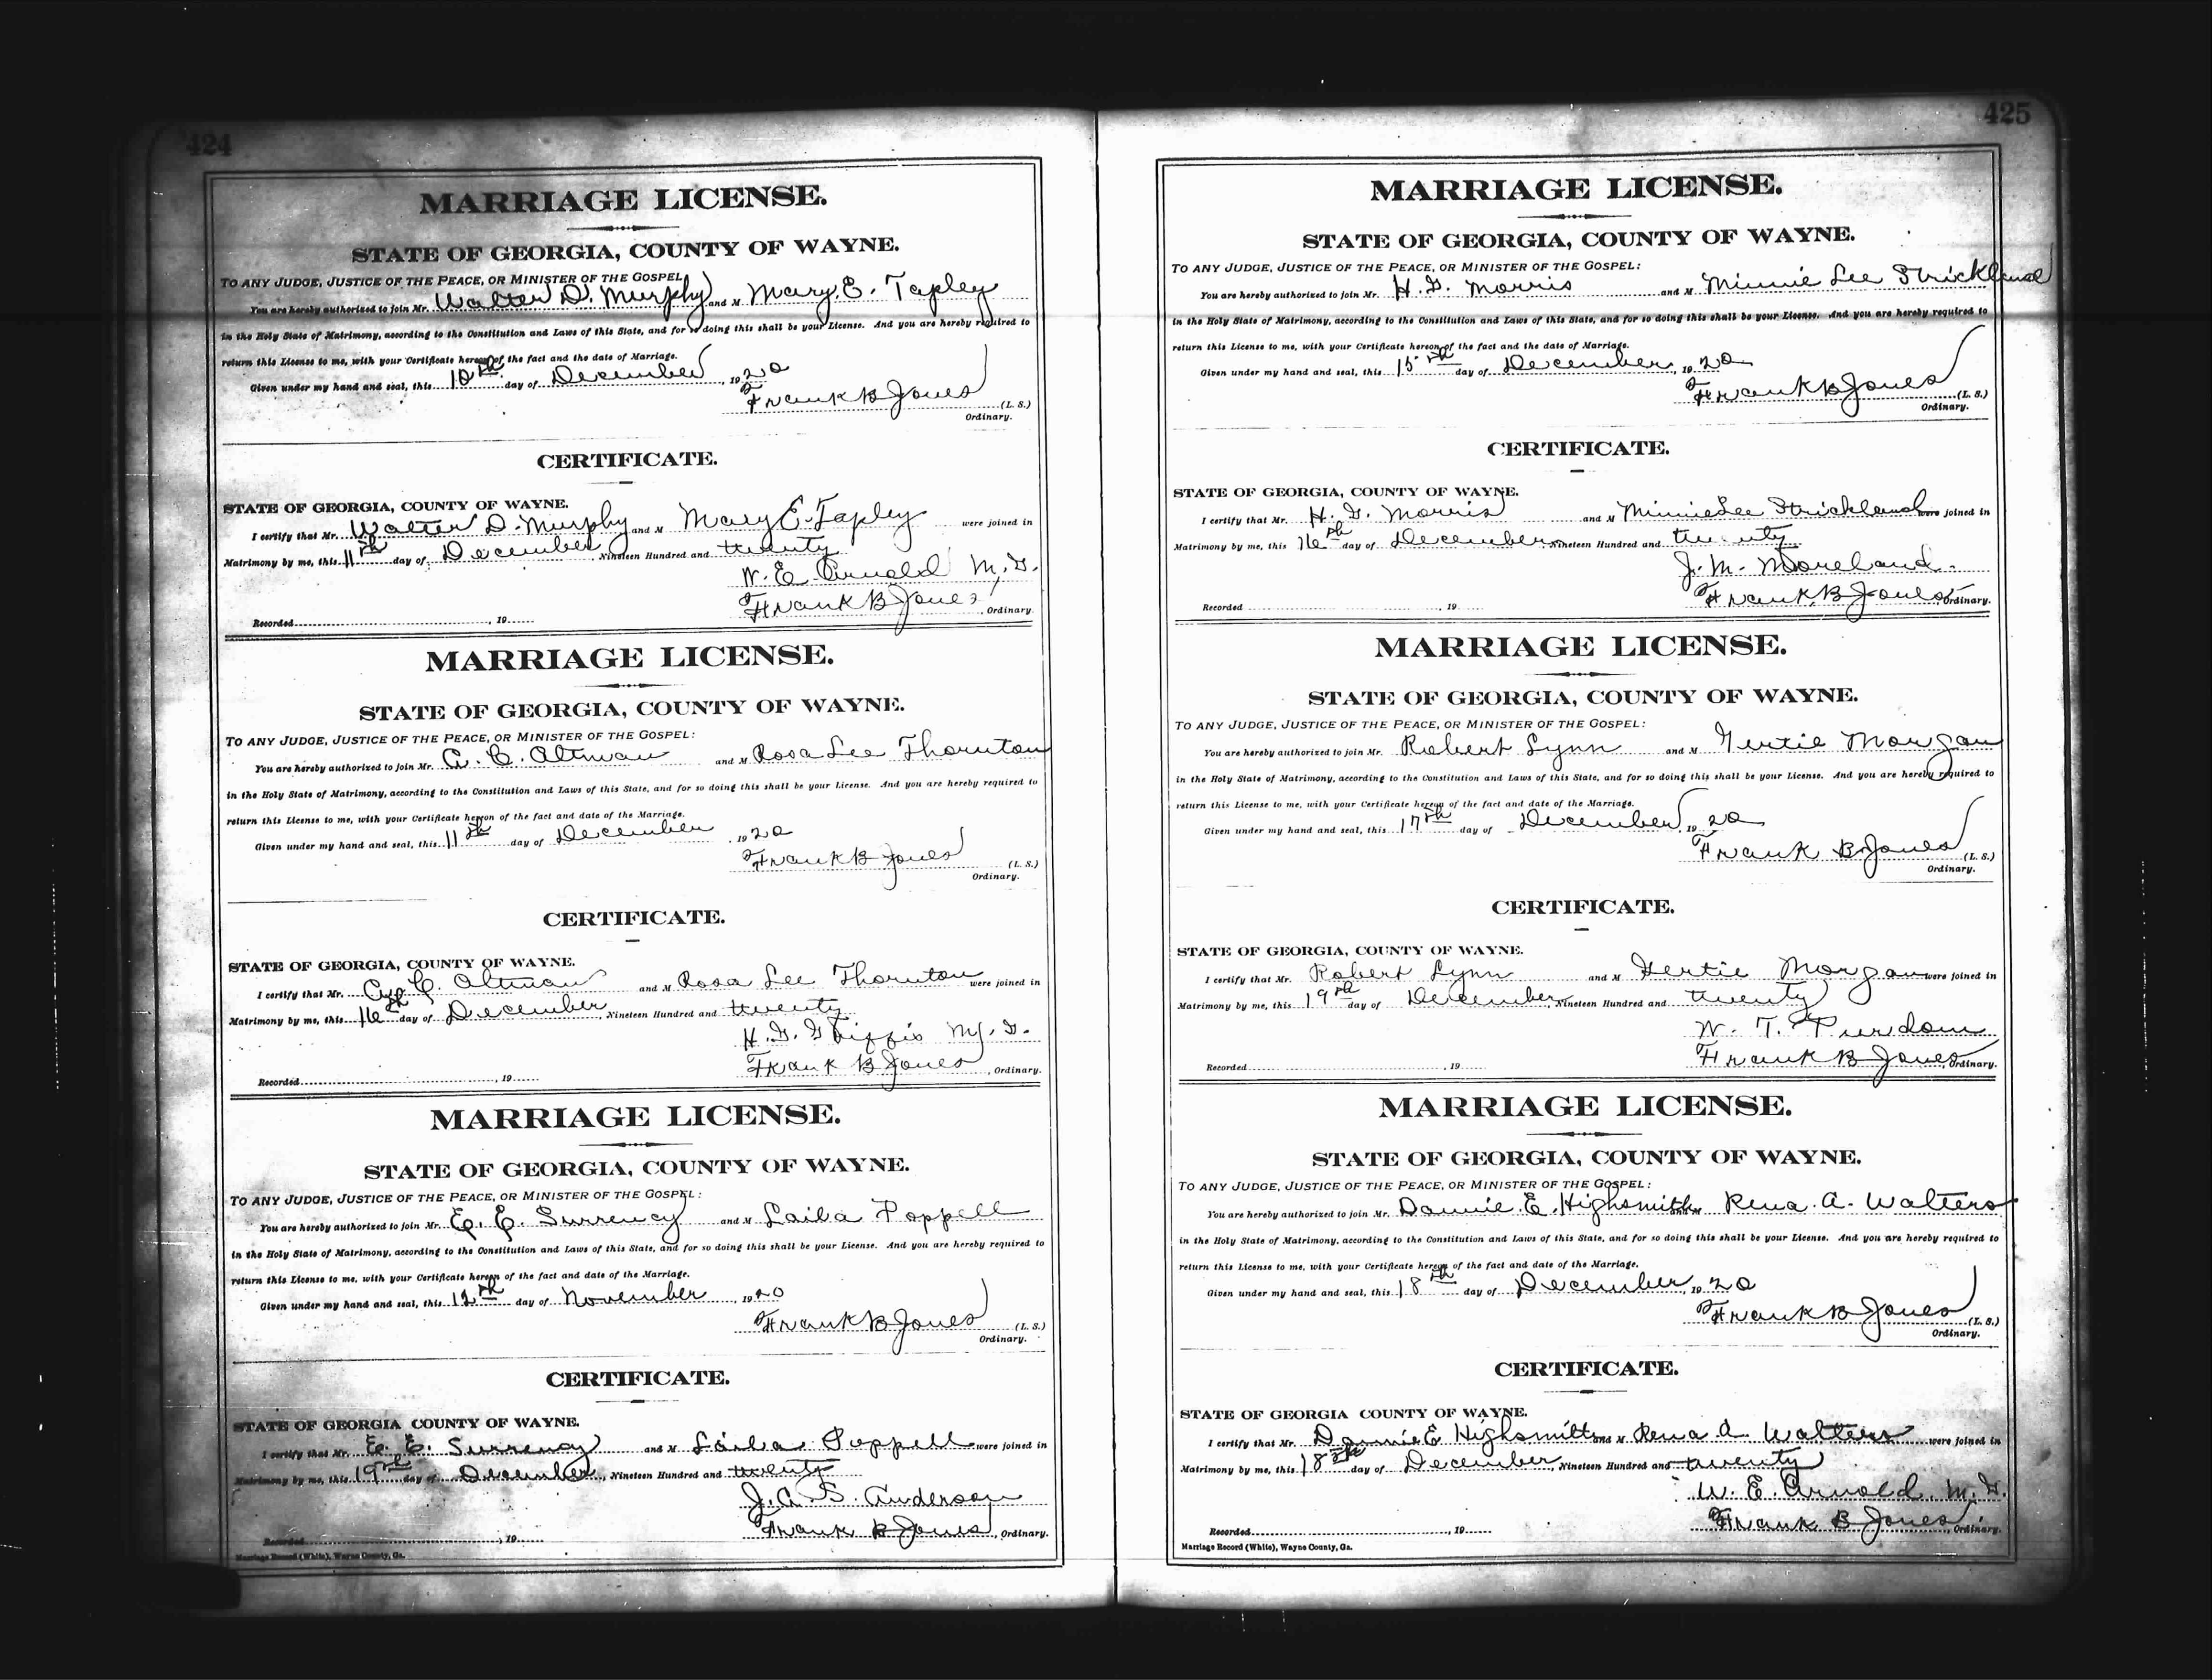 424
MARRIAGE LICENSE.
STATE OF GEORGIA, COUNTY OF WAYNE.
TO ANY JUDGE, JUSTICE OF THE PEACE, OR MINISTER OF THE GOSPEL:
You are hereby authorized to join Mr. Walter D. Murphy and M Mary. E. Tapley
in the Holy State of Matrimony, according to the Constitution and Laws of this State, and for so doing this shall be your License. And you are hereby required to
return this License to me, with your Certificate hereon of the fact and the date of Marriage.
Given under my hand and seal, this 10th day of December, 1920
Frank B Jones (L. S.)
Ordinary.
CERTIFICATE.
STATE OF GEORGIA, COUNTY OF WAYNE.
I certify that Mr. Walter D. Murphy and M Mary E. Tapley were joined in
Matrimony by me, this 11th day of December, Nineteen Hundred and twenty
W. E. Arnold M. G.
Recorded , 19 Frank B Jones, Ordinary.
MARRIAGE LICENSE.
STATE OF GEORGIA, COUNTY OF WAYNE.
TO ANY JUDGE, JUSTICE OF THE PEACE, OR MINISTER OF THE GOSPEL:
You are hereby authorized to join Mr. C. Altman and M Rosa Lee Thornton
in the Holy State of Matrimony, according to the Constitution and Laws of this State, and for so doing this shall be your License. And you are hereby required to
return this License to me, with your Certificate hereon of the fact and date of the Marriage.
Given under my hand and seal, this 11th day of December, 1920
Frank B Jones (L. S.)
Ordinary.
CERTIFICATE.
STATE OF GEORGIA, COUNTY OF WAYNE.
I certify that Mr. C. Altman and M Rosa Lee Thornton were joined in
Matrimony by me, this 16th day of December, Nineteen Hundred and twenty
H. G. Griffis M. G.
Recorded , 19 Frank B Jones, Ordinary.
MARRIAGE LICENSE.
STATE OF GEORGIA, COUNTY OF WAYNE.
TO ANY JUDGE, JUSTICE OF THE PEACE, OR MINISTER OF THE GOSPEL:
You are hereby authorized to join Mr. E. E. Surrency and M Laila Poppell
in the Holy State of Matrimony, according to the Constitution and Laws of this State, and for so doing this shall be your License. And you are hereby required to
return this License to me, with your Certificate hereon of the fact and date of the Marriage.
Given under my hand and seal, this 12th day of November, 1920
Frank B Jones (L. S.)
Ordinary.
CERTIFICATE.
STATE OF GEORGIA COUNTY OF WAYNE.
I certify that Mr. E. E. Surrency and M Laila Poppell were joined in
Matrimony by me, this 19th day of December, Nineteen Hundred and twenty
J. A. S. Anderson
Recorded , 19 Frank B Jones, Ordinary.
Marriage Record (White), Wayne County, Ga.
425
MARRIAGE LICENSE.
STATE OF GEORGIA, COUNTY OF WAYNE.
TO ANY JUDGE, JUSTICE OF THE PEACE, OR MINISTER OF THE GOSPEL:
You are hereby authorized to join Mr. H. G. Morris and M Minnie Lee Strickland
in the Holy State of Matrimony, according to the Constitution and Laws of this State, and for so doing this shall be your License. And you are hereby required to
return this License to me, with your Certificate hereon of the fact and date of the Marriage.
Given under my hand and seal, this 15th day of December, 1920
Frank B Jones (L. S.)
Ordinary.
CERTIFICATE.
STATE OF GEORGIA, COUNTY OF WAYNE.
I certify that Mr. H. G. Morris and M Minnie Lee Strickland were joined in
Matrimony by me, this 16th day of December, Nineteen Hundred and twenty
J. M. Moreland.
Recorded , 19 Frank B Jones, Ordinary.
MARRIAGE LICENSE.
STATE OF GEORGIA, COUNTY OF WAYNE.
TO ANY JUDGE, JUSTICE OF THE PEACE, OR MINISTER OF THE GOSPEL:
You are hereby authorized to join Mr. Robert Lynn and M Gertie Morgan
in the Holy State of Matrimony, according to the Constitution and Laws of this State, and for so doing this shall be your License. And you are hereby required to
return this License to me, with your Certificate hereon of the fact and date of the Marriage.
Given under my hand and seal, this 17th day of December, 1920
Frank B Jones (L. S.)
Ordinary.
CERTIFICATE.
STATE OF GEORGIA, COUNTY OF WAYNE.
I certify that Mr. Robert Lynn and M Gertie Morgan were joined in
Matrimony by me, this 19th day of December, Nineteen Hundred and twenty
W. T. Purdom
Recorded , 19 Frank B Jones, Ordinary.
MARRIAGE LICENSE.
STATE OF GEORGIA, COUNTY OF WAYNE.
TO ANY JUDGE, JUSTICE OF THE PEACE, OR MINISTER OF THE GOSPEL:
You are hereby authorized to join Mr. Dannie. E. Highsmith and M Rena. A. Walters
in the Holy State of Matrimony, according to the Constitution and Laws of this State, and for so doing this shall be your License. And you are hereby required to
return this License to me, with your Certificate hereon of the fact and date of the Marriage.
Given under my hand and seal, this 18th day of December, 1920
Frank B Jones (L. S.)
Ordinary.
CERTIFICATE.
STATE OF GEORGIA COUNTY OF WAYNE.
I certify that Mr. Dannie E Highsmith and M Rena A Walters were joined in
Matrimony by me, this 18th day of December, Nineteen Hundred and twenty
W. E. Arnold, M. G.
Recorded , 19 Frank B Jones, Ordinary.
Marriage Record (White), Wayne County, Ga.